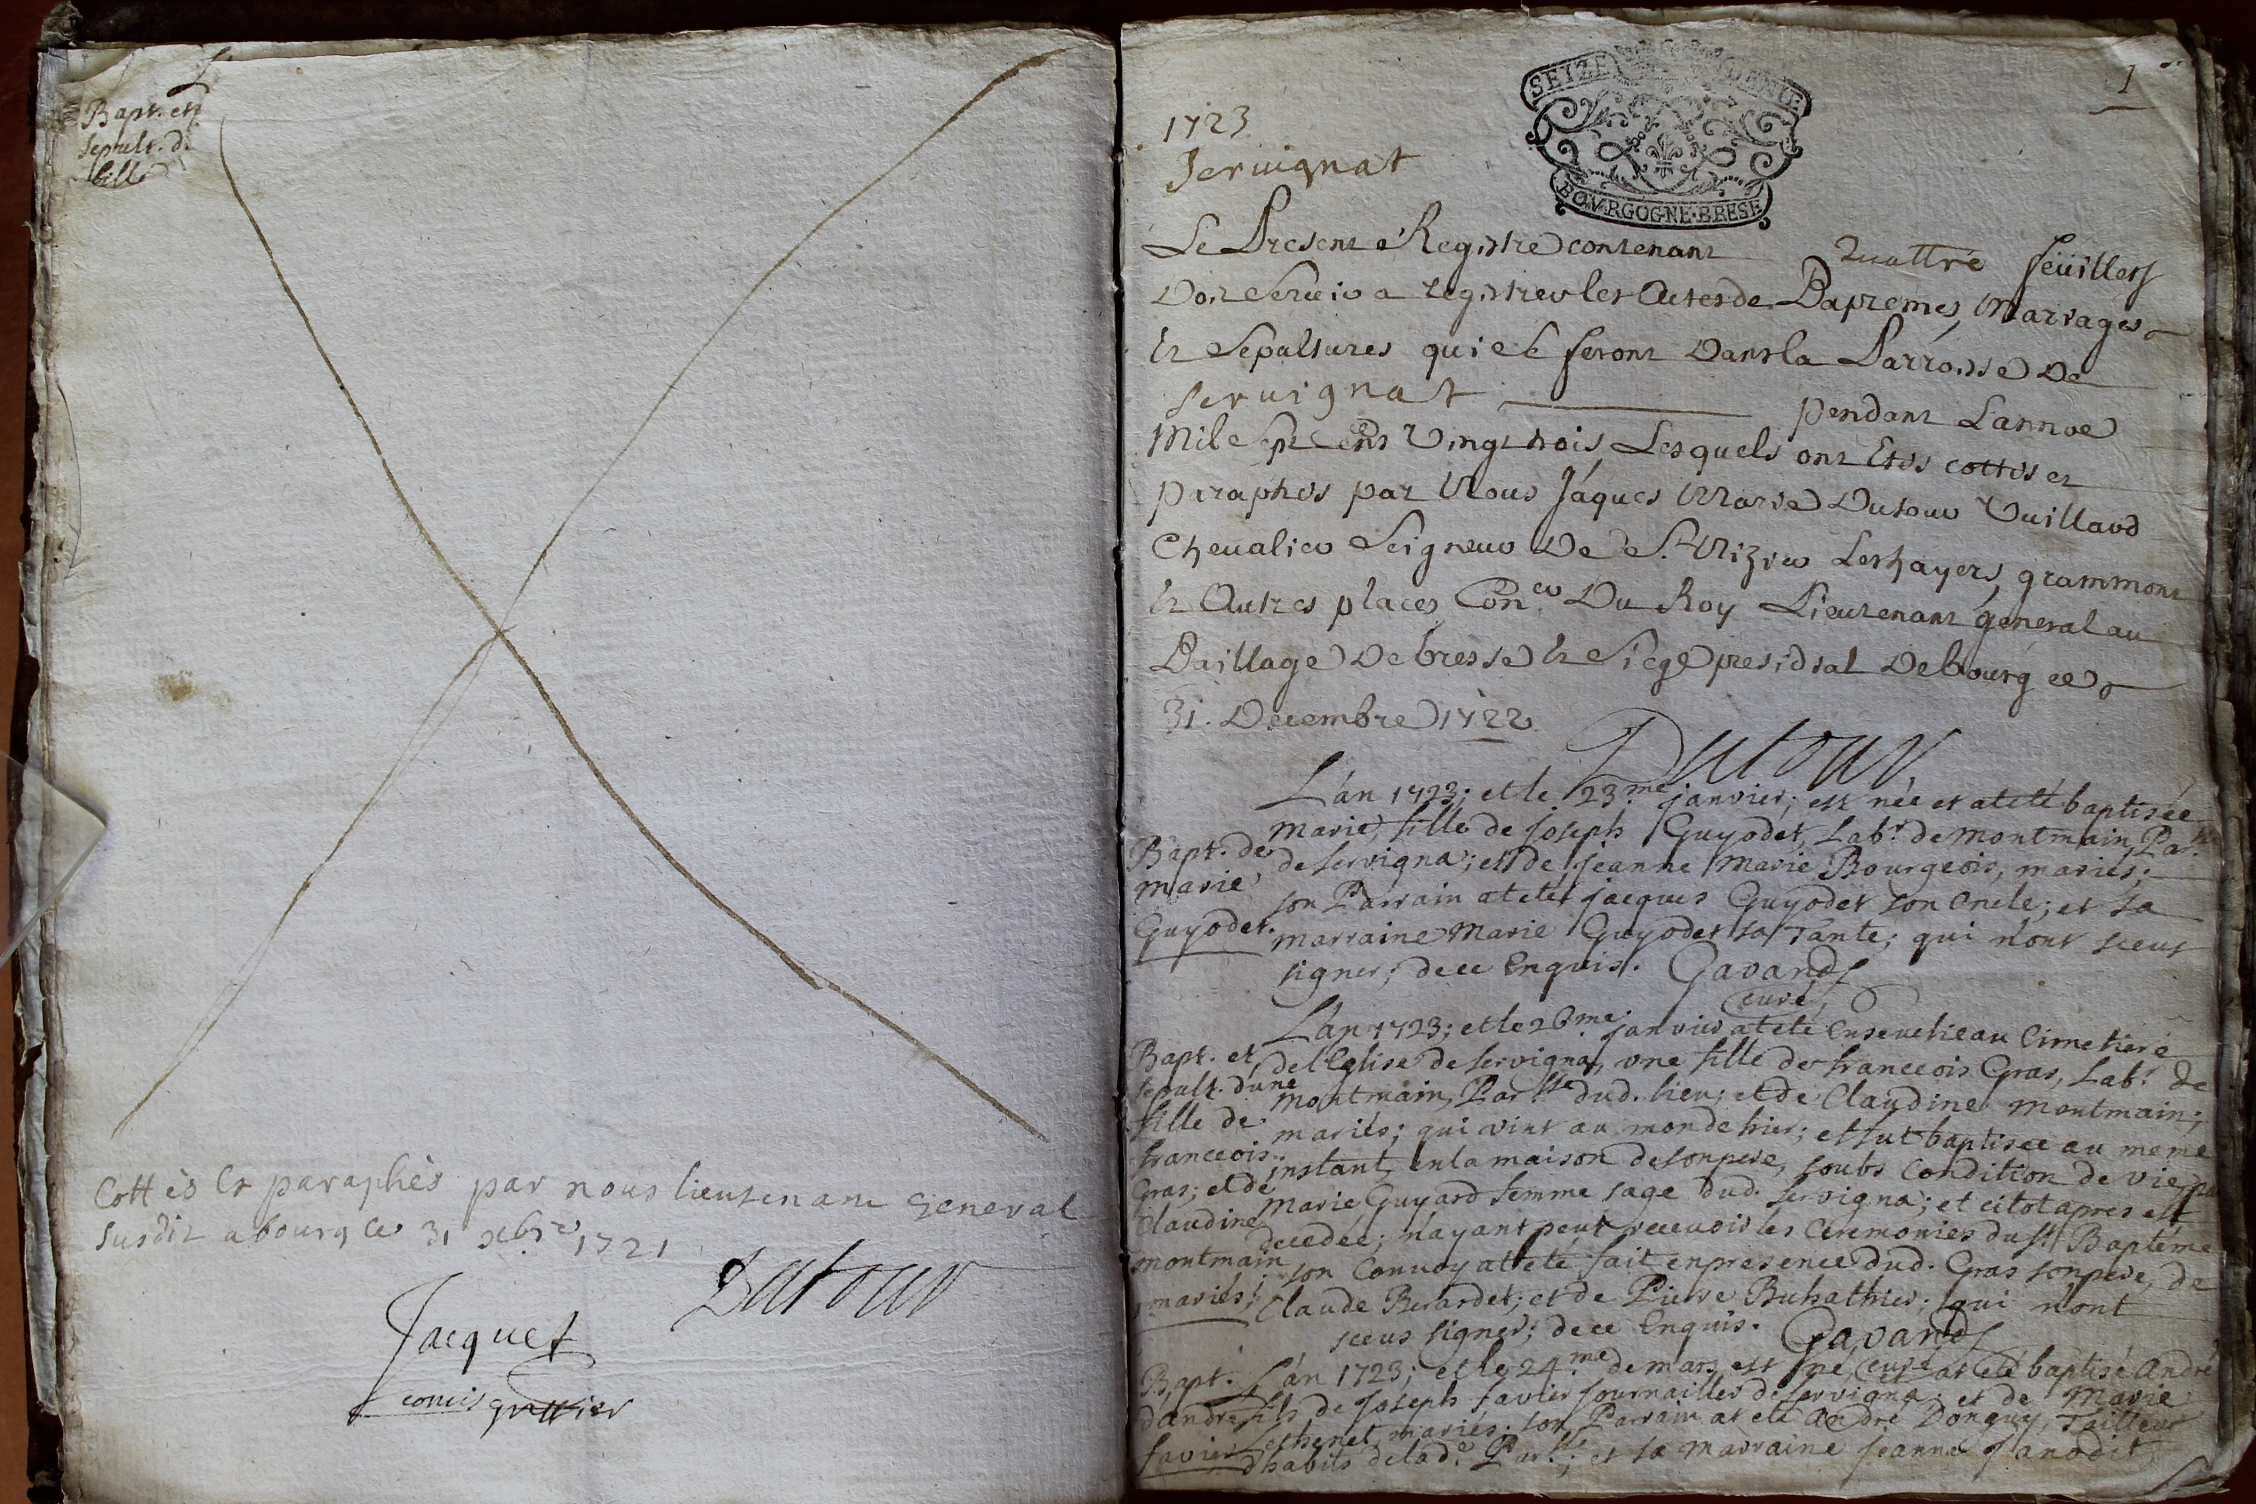 Bapt. et
sepult. d.
fille
Cottés Et paraphés par nous lieutenant General
susdit a bourg ce 31 xbre 1721
Dutour
Jacquet
comis greffier
1
SEIZE
BOVRGOGNE·BRESE
1723
Servignat
Le Present Registre contenant quattre feüillets
Doit Servir a registrer les Actes de Baptemes, Mariages
Et Sepultures qui se feront Dans la Parroisse De
servignat pendant Lannee
Mil Sept Cens Vingt trois, Lesquels ont Estés cottés et
paraphés par Nous Jáques Marie Dutour Vuillard
Chevalier Seigneur De St Nizier Leshayers, grammont
Et Autres places Conser Du Roy Lieutenant general au
Bailliage De bresse Et Siege presidial De bourg ce
31. Decembre 1722
Dutour
L'án 1723; et le 23.me janvier; est née et at eté baptisée
Marie, fille de Joseph Guyodet, Labr. de montmain, Par.sse
de servigna; et de jeanne Marie Bourgeois, mariés;
son Parrain at eté jacques Guyodet son Oncle; et sa
marraine Marie Guyodet sa Tante; qui n'ont sceus
signer; de ce Enquis. Gavand
curé
Bapt. de
marie
Guyodet.
L'án 1723; et le 26.me janvier at eté Ensevelie au Cimetiere
de l'Eglise de servigna, une fille de francois Gras, Labr. de
montmain, Par.sse dud. lieu; et de Claudine montmain;
mariés; qui vint au monde hier; et fut baptisee au meme
instant, en la maison de son pere, soubs Condition de vie, par
Marie Guyard femme sage dud. servigna; et citot apres est
decedée; n'ayant peut recevoir les Ceremonies du St Baptéme
son Convoy at eté fait en presence dud. Gras son pere, de
Claude Berardet; et de Pierre Buhathier; qui n'ont
sceus signer; de ce Enquis. Gavand
curé
Bapt. et
sepult. d'une
fille de
francois
Gras; et de
Claudine
montmain
mariés;
L'án 1723; et le 24.me de mars est né, et at eté baptisé André
fils de Joseph favier journailler de servigna; et de Marie
mariés; son Parrain at eté André Donguy, Tailleur
d'habits de lad.e Par.sse; et sa marraine jeanne Janodet
Bapt.
d'andré
favier